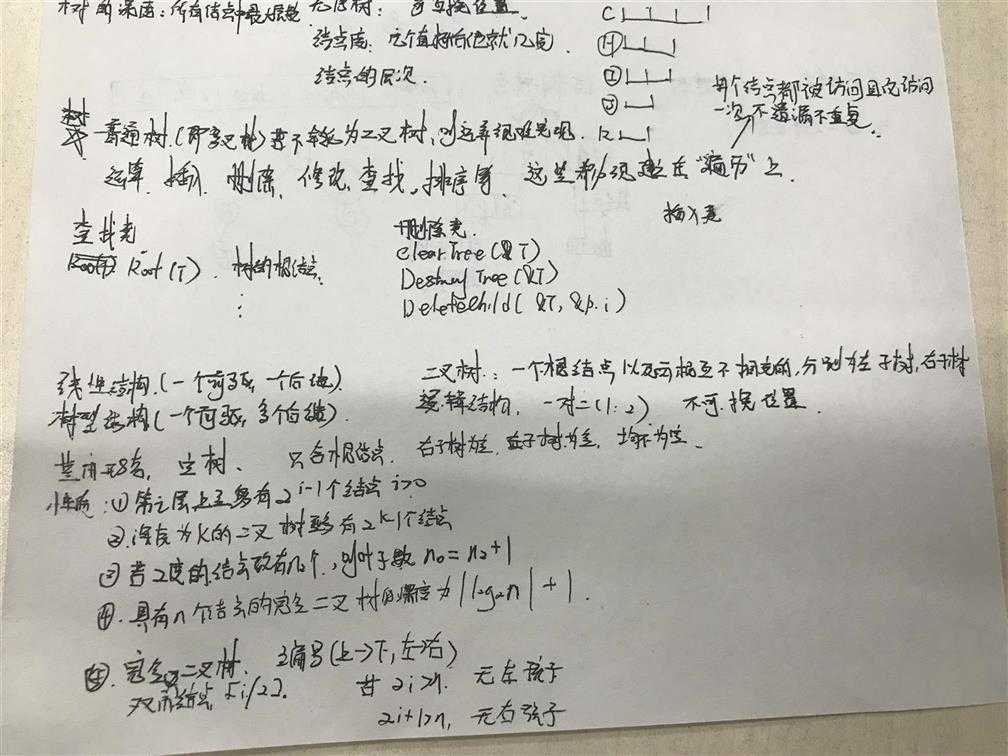 树的深度：所有结点中最大层数 无序树： 可互换位置.
结点度：
结点的层次.
C
H
I
J
K
每个结点都被访问且仅访问
一次，不遗漏不重复.
普通树(即多叉树)若不转化为二叉树，则运算很难实现.
运算. 插入 删除. 修改. 查找, 排序等. 这些都必须建立在"遍历"上.
查找类
Root(T). 树的根结点.
⋮
删除类.
ClearTree(&T)
DestroyTree(&T)
DeleteChild(&T, &p. i)
插入类
线性结构.(一个前驱, 一个后继).
树型结构(一个前驱, 多个后继)
二叉树: 一个根结点以及两棵互不相交的, 分别为左子树, 右子树
逻辑结构, 一对二(1:2) 不可换位置
基本形态, 空树、 只含根结点. 右子树为空, 左子树为空, 均不为空.
性质: ① 第i层上至多有2^i-1个结点 i>0
②. 深度为K的二叉树至多有2^k-1个结点
③ 若2度的结点数有n₂个, 则叶子数n₀=n₂+1
④. 具有n个结点的完全二叉树的深度为|log₂n|+1.
⑤. 完全二叉树. 编号(上→下, 左→右)
双亲结点 [i/2].
若2i>n. 无左孩子
2i+1>n, 无右孩子